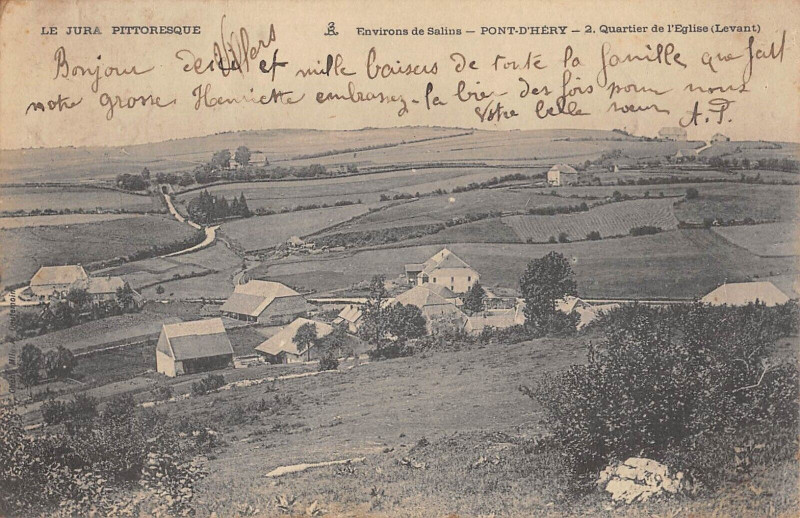 LE JURA PITTORESQUE
Environs de Salins — PONT-D'HÉRY — 2. Quartier de l'Eglise (Levant)
Villers
Bonjour de et mille baisers de toute la famille que fait
notre grosse Henriette embrassez-la bien des fois pour nous
Votre belle sœur A. P.